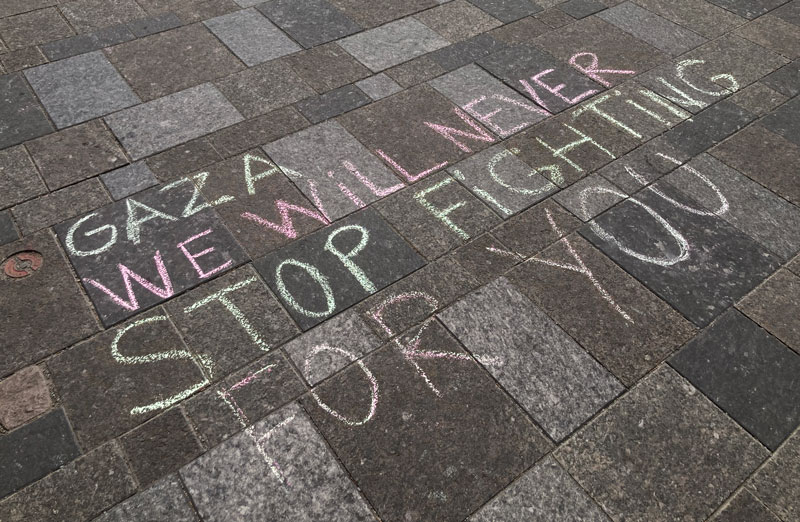 GAZA
WE WILL NEVER
STOP FIGHTING
FOR YOU